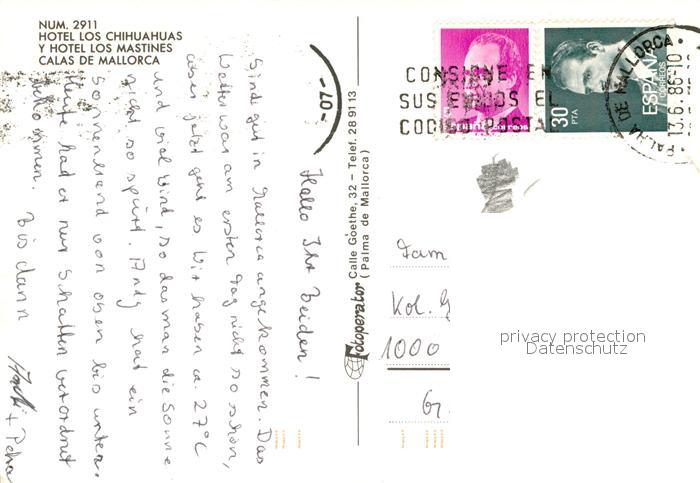 NUM. 2911
HOTEL LOS CHIHUAHUAS
Y HOTEL LOS MASTINES
CALAS DE MALLORCA
Hallo Ihr Beiden!
Sind gut in Mallorca angekommen. Das
Wetter war am ersten Tag nicht so schön,
aber jetzt geht es Wir haben ca. 27°C
und viel Wind, so das man die Sonne
nicht so spürt. Andy hat ein
Sonnenbrand von oben bis unten.
Heute hat er nur Schatten verordnet
bekommen.
Bis dann
+ Petra
-07-
Fotoperator Calle Goethe, 32 - Telef. 28 91 13
(Palma de Mallorca)
CONSIGNE EN
SUS ENVIOS EL
CODIGO POSTAL
correos
30 PTA
ESPAÑA
CORREOS
PALMA DE MALLORCA
13.6.86-10
Fam
Kol. G
1000
privacy protection
Datenschutz